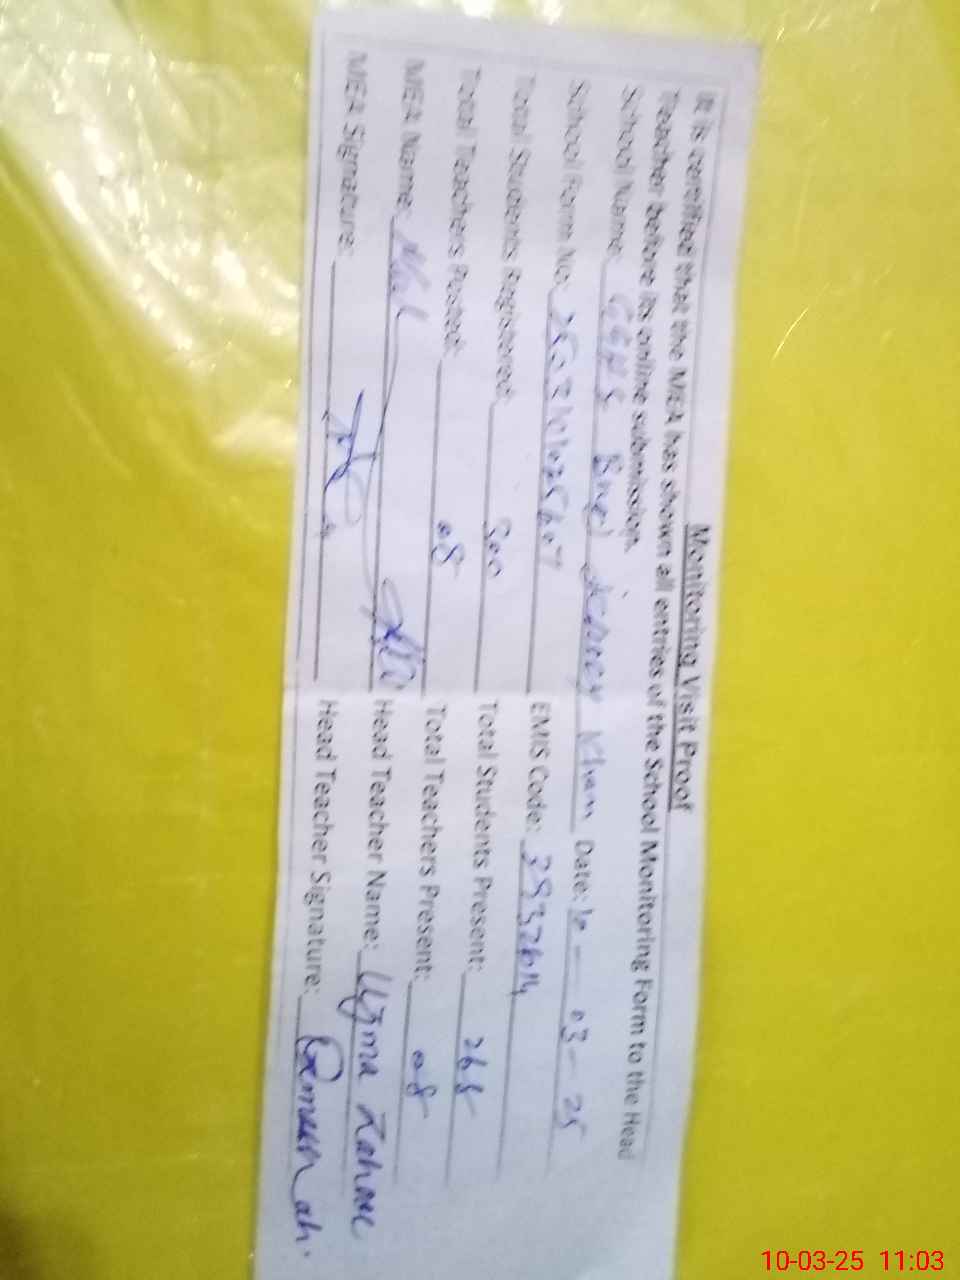 Monitoring Visit Proof
It is certified that the MEA has shown all entries of the School Monitoring Form to the Head
Teacher before its online submission.
School Name: GGHS Khan Date: 10 - 03 - 25
School Form No: EMIS Code: 39326114
Total Students Registered: 300 Total Students Present: 268
Total Teachers Posted: 08 Total Teachers Present: 08
MEA Name: Head Teacher Name: Uzma
MEA Signature: Head Teacher Signature:
10-03-25 11:03